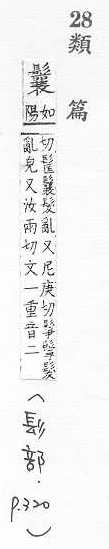 28
類
篇
鬤
如陽
切髼鬤髮亂又尼庚切鬇鬤髮
亂皃又汝兩切文一重音二
(髟部.
p.320)